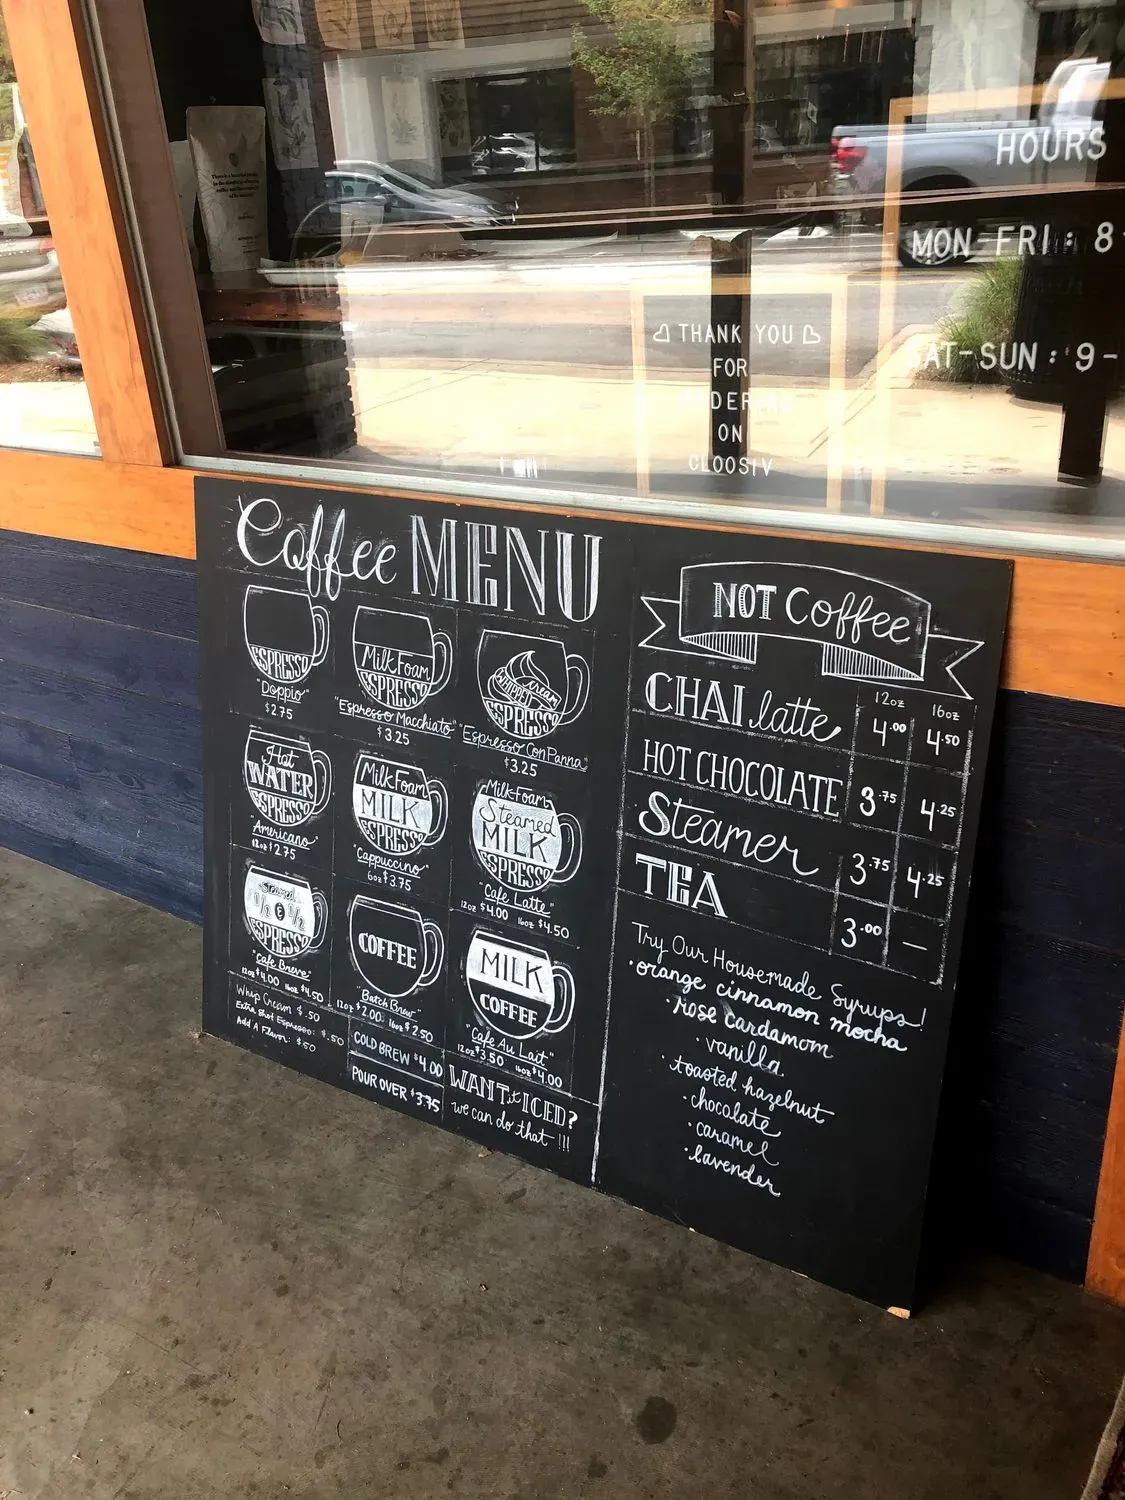 HOURS
MON-FRI: 8
SAT-SUN: 9-
THANK YOU
FOR
ORDERING
ON
CLOOSIV
Coffee MENU
ESPRESSO
"Doppio"
$2.75
Milk Foam
ESPRESSO
"Espresso Macchiato"
$3.25
Whipped Cream
ESPRESSO
"Espresso Con Panna"
$3.25
Hot
WATER
ESPRESSO
"Americano"
12oz $2.75
Milk Foam
MILK
ESPRESSO
"Cappuccino"
6oz $3.75
Milk Foam
Steamed
MILK
ESPRESSO
"Cafe Latte"
12oz $4.00 16oz $4.50
Steamed
½ & ½
ESPRESSO
"Cafe Breve"
12oz $4.00 16oz $4.50
COFFEE
"Batch Brew"
12oz $2.00 16oz $2.50
MILK
COFFEE
"Cafe Au Lait"
12oz $3.50 16oz $4.00
Whip Cream $.50
Extra Shot Espresso: $.50
Add A Flavor: $.50
COLD BREW $4.00
POUR OVER $3.75
WANT it ICED?
we can do that !!!
NOT Coffee
12oz 16oz
CHAI latte 4.00 4.50
HOT CHOCOLATE 3.75 4.25
Steamer 3.75 4.25
TEA 3.00 —
Try Our Housemade Syrups!
• orange cinnamon mocha
• rose cardamom
• vanilla
• toasted hazelnut
• chocolate
• caramel
• lavender